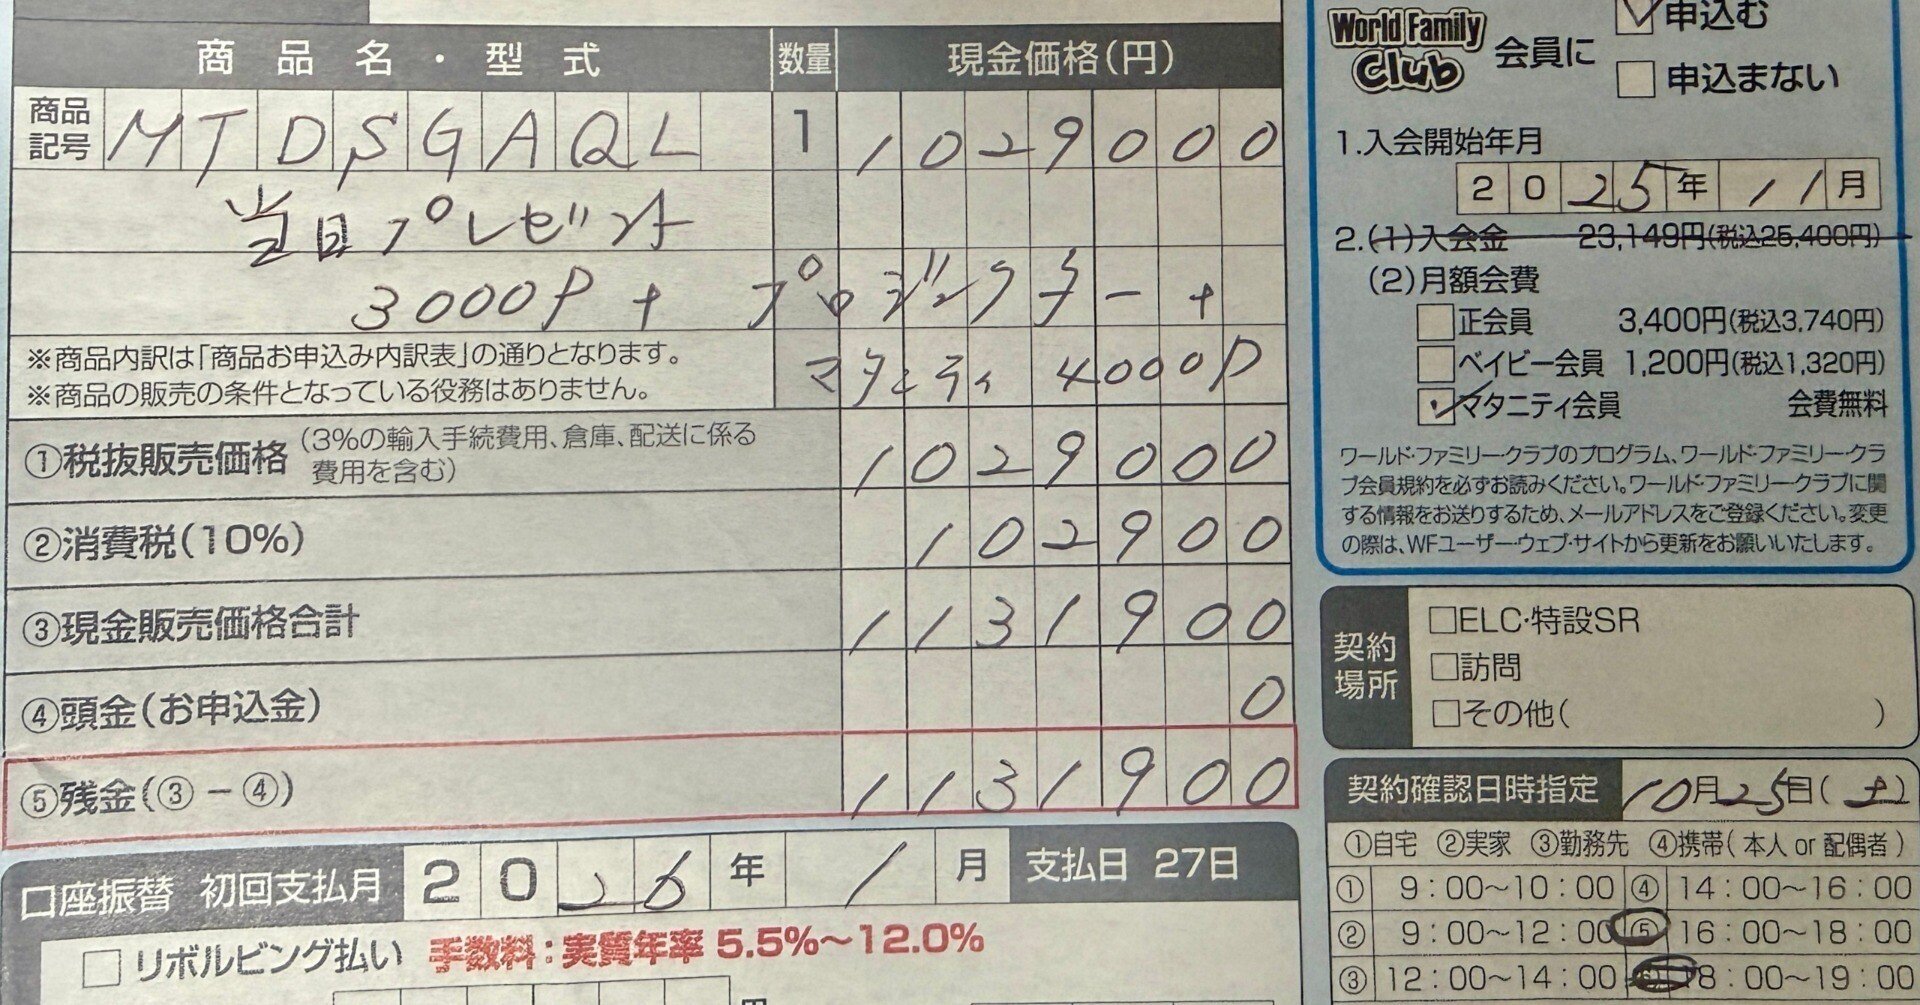 商品名・型式 数量 現金価格(円)
商品記号 MTDSGAQL 1 1029000
当日プレゼント
3000P + プロジェクター +
※商品内訳は「商品お申込み内訳表」の通りとなります。
※商品の販売の条件となっている役務はありません。
マタニティ 4000P
①税抜販売価格 (3%の輸入手続費用、倉庫、配送に係る費用を含む) 1029000
②消費税(10%) 102900
③現金販売価格合計 1131900
④頭金(お申込金) 0
⑤残金(③-④) 1131900
口座振替 初回支払月 2026年 1月 支払日 27日
リボルビング払い 手数料:実質年率 5.5%~12.0%
円
World Family Club 会員に
申込む
申込まない
1.入会開始年月
2025年 11月
2.(1)入会金 23,149円(税込25,400円)
(2)月額会費
正会員 3,400円(税込3,740円)
ベイビー会員 1,200円(税込1,320円)
マタニティ会員 会費無料
ワールド・ファミリー・クラブのプログラム、ワールド・ファミリー・クラ
ブ会員規約を必ずお読みください。ワールド・ファミリー・クラブに関
する情報をお送りするため、メールアドレスをご登録ください。変更
の際は、WFユーザー・ウェブ・サイトから更新をお願いいたします。
契約場所
□ELC・特設SR
□訪問
□その他( )
契約確認日時指定 10月25日(土)
①自宅 ②実家 ③勤務先 ④携帯(本人 or 配偶者)
① 9:00~10:00 ④ 14:00~16:00
② 9:00~12:00 ⑤ 16:00~18:00
③ 12:00~14:00 18:00~19:00